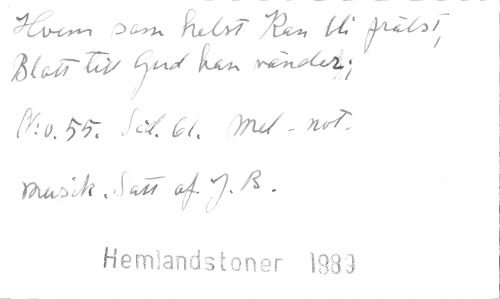 Hvem som helst kan bli frälst,
Blott till Gud han vänder;
N:o. 55. Sid. 61. Mel - not.
musik. Satt af J. B.
Hemlandstoner 1889